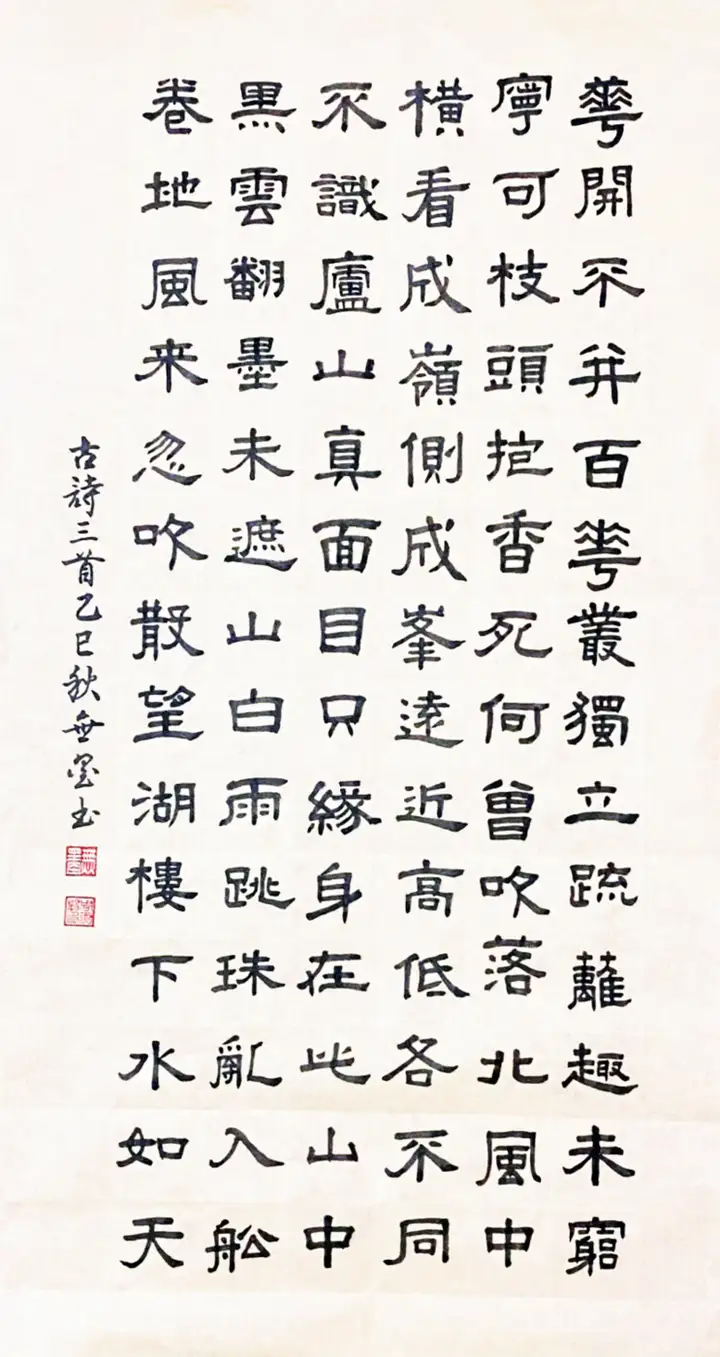 華開不并百華叢獨立疏蘺趣未窮
寧可枝頭抱香死何曾吹落北風中
橫看成嶺側成峯遠近高低各不同
不識廬山真面目只緣身在此山中
黑雲翻墨未遮山白雨跳珠亂入船
卷地風来忽吹散望湖樓下水如天
古詩三首乙巳秋無墨书